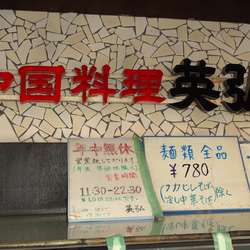 中国料理 英弘
年中無休
営業致しております
営業時間
11:30-22:30
英弘
麺類全品
¥780
(フカヒレそば
冷し中華そば)除く